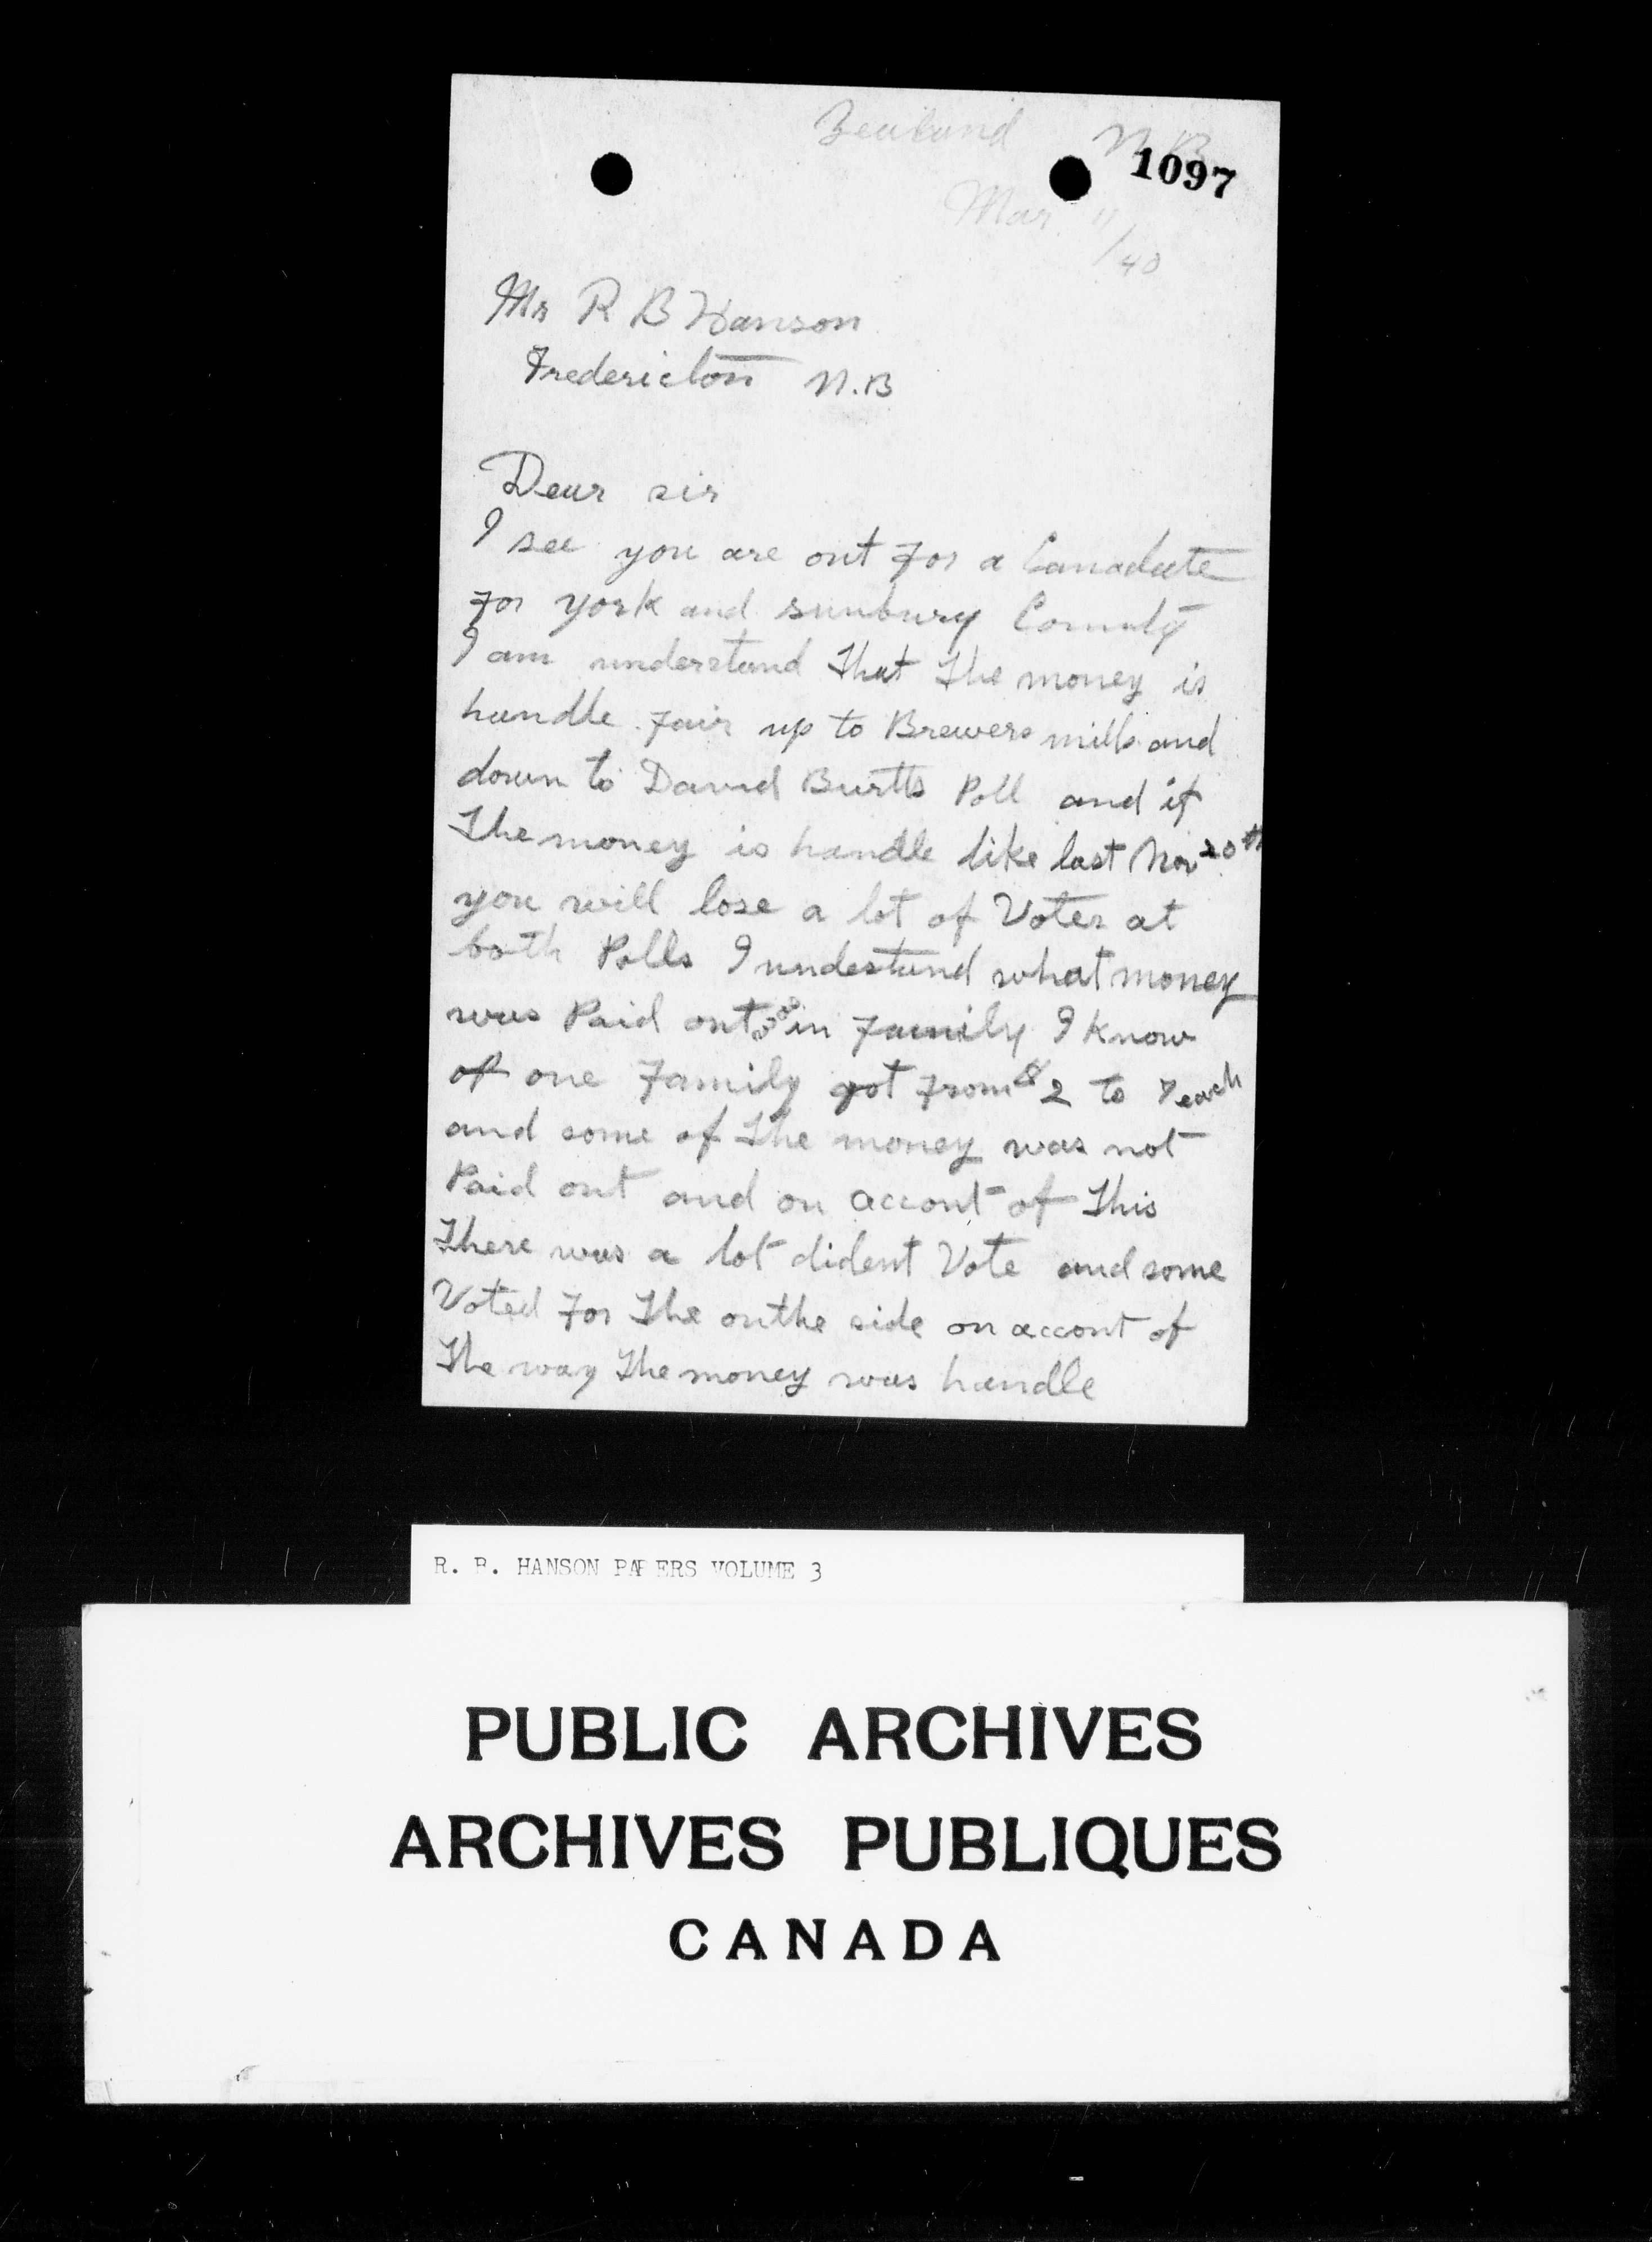 Zealand N.B
1097
Mar 11/40
Mr R B Hanson
Fredericton N.B
Dear sir
I see you are out for a Canadate
for york and sunbury County
I am understand that the money is
handle fair up to Brewers mills and
down to David Burtts Poll and if
the money is handle like last Nov 20th
you will lose a lot of Votes at
both Polls I undestand what money
was Paid out in family I know
of one family got from $2 to 7 each
and some of the money was not
Paid out and on accont of this
there was a lot dident Vote and some
Voted for the outhe side on accont of
the way the money was handle
R. B. HANSON PAPERS VOLUME 3
PUBLIC ARCHIVES
ARCHIVES PUBLIQUES
CANADA